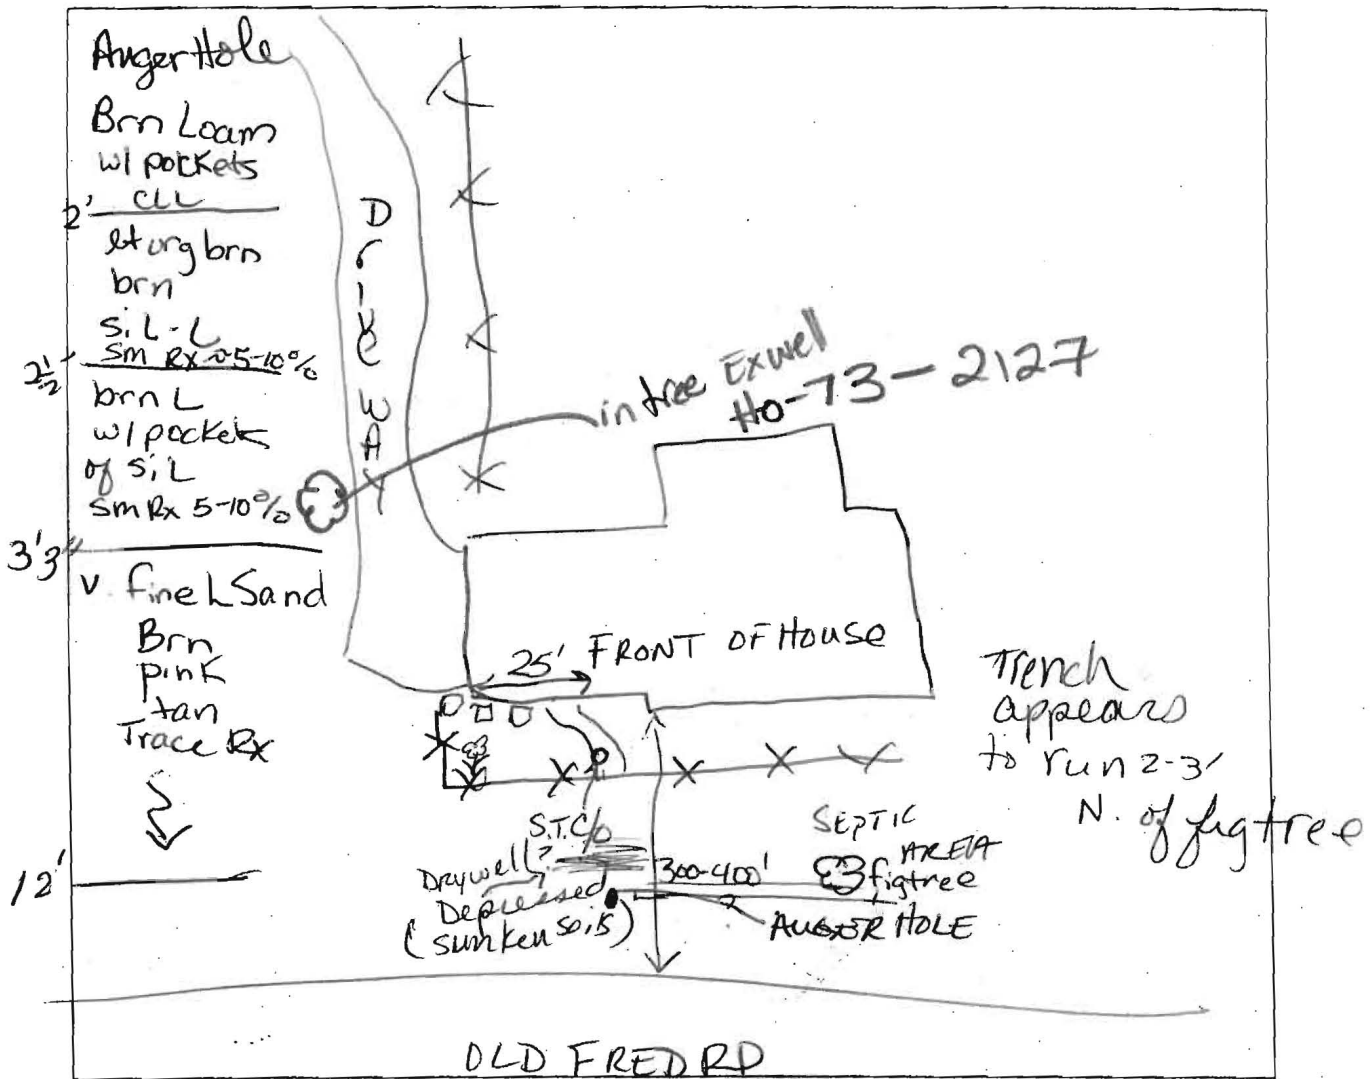 Auger Hole
Brn Loam
w/ pockets
CLL
2'
lt org brn
brn
SiL-L
Sm Rx ~5-10%
2½'
brn L
w/ pockets
of SiL
Sm Rx 5-10%
3'3"
v. fine L Sand
Brn
pink
tan
Trace Rx
12'
DriveWAY
in tree Exwell
Ho-73-2127
25' FRONT OF HOUSE
Trench
appears
to run 2-3'
N. of figtree
S.T.C/o
Drywell?
Depressed
(sunken soils)
300-400'
SEPTIC
AREA
figtree
AUGER HOLE
OLD FRED RD